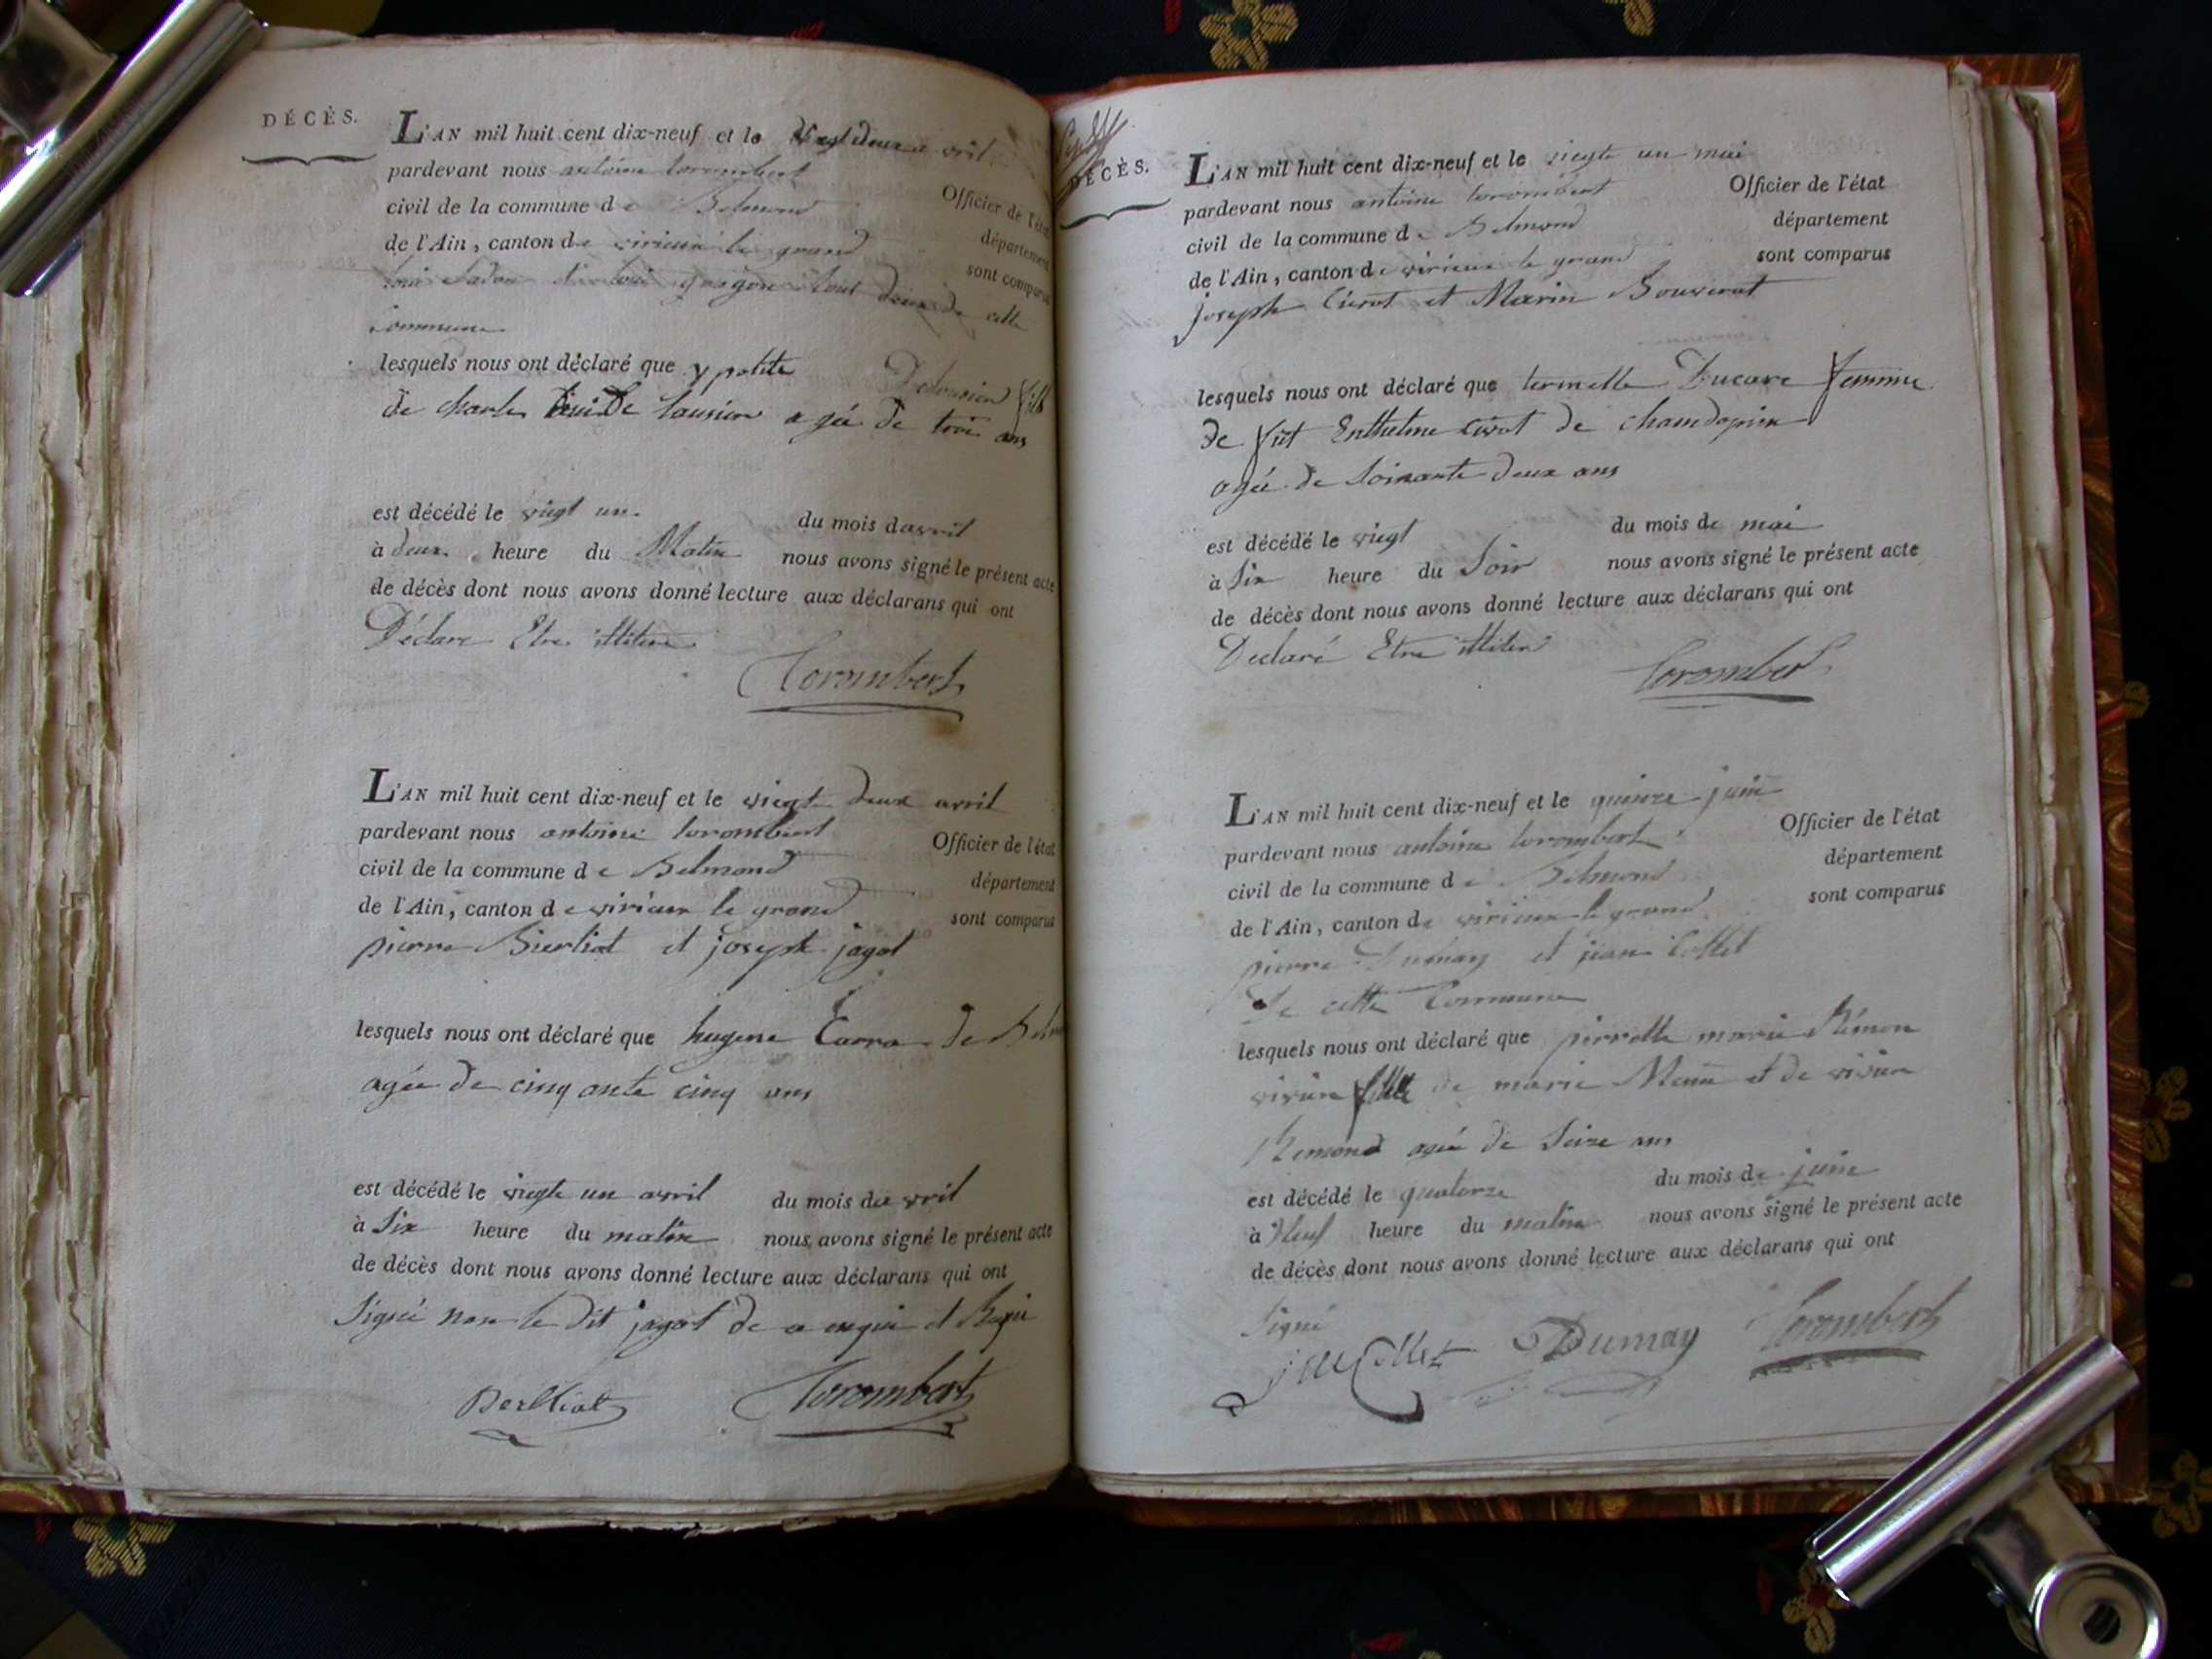 DÉCÈS.
L'AN mil huit cent dix-neuf et le vingt deux avril
pardevant nous antoine Corombert Officier de l'état
civil de la commune de Belmond département
de l'Ain, canton de virieux le grand sont comparus
tout deux de cette
commune
lesquels nous ont déclaré que ypolite Delausien fils
de charle de lausien agée de troi ans
est décédé le vingt un du mois davril
à deux heure du Matin nous avons signé le présent acte
de décès dont nous avons donné lecture aux déclarans qui ont
Déclare Etre illitere
Corombert
L'AN mil huit cent dix-neuf et le viegt deux avril
pardevant nous antoine Corombert Officier de l'état
civil de la commune de Belmond département
de l'Ain, canton de virieux le grand sont comparus
pierre Bertiot et joseph jagot
lesquels nous ont déclaré que hugene Carra de
agée de cinq ante cinq ans
est décédé le viegte un avril du mois de avril
à Six heure du matin nous avons signé le présent acte
de décès dont nous avons donné lecture aux déclarans qui ont
Signé non le dit jagot de a enqui et
Corombert
DÉCÈS.
L'AN mil huit cent dix-neuf et le viegte un mai
pardevant nous antoine Corombert Officier de l'état
civil de la commune de Belmond département
de l'Ain, canton de virieux le grand sont comparus
joseph et Marin Bouverat
lesquels nous ont déclaré que Ducare femme
de fut Enthelme de
agée de Soixante deux ans
est décédé le viegt du mois de mai
à Six heure du Soir nous avons signé le présent acte
de décès dont nous avons donné lecture aux déclarans qui ont
Declaré Etre illiter
Corombert
L'AN mil huit cent dix-neuf et le quinze juin
pardevant nous antoine Corombert Officier de l'état
civil de la commune de Belmond département
de l'Ain, canton de virieux le grand sont comparus
pierre Dumay et jean Collet
De cette Commune
lesquels nous ont déclaré que pierrette marie Rémon
fille de marie et de
Remond agée de Seize ans
est décédé le quatorze du mois de juin
à Neuf heure du matin nous avons signé le présent acte
de décès dont nous avons donné lecture aux déclarans qui ont
Signé
Collet Dumay Corombert